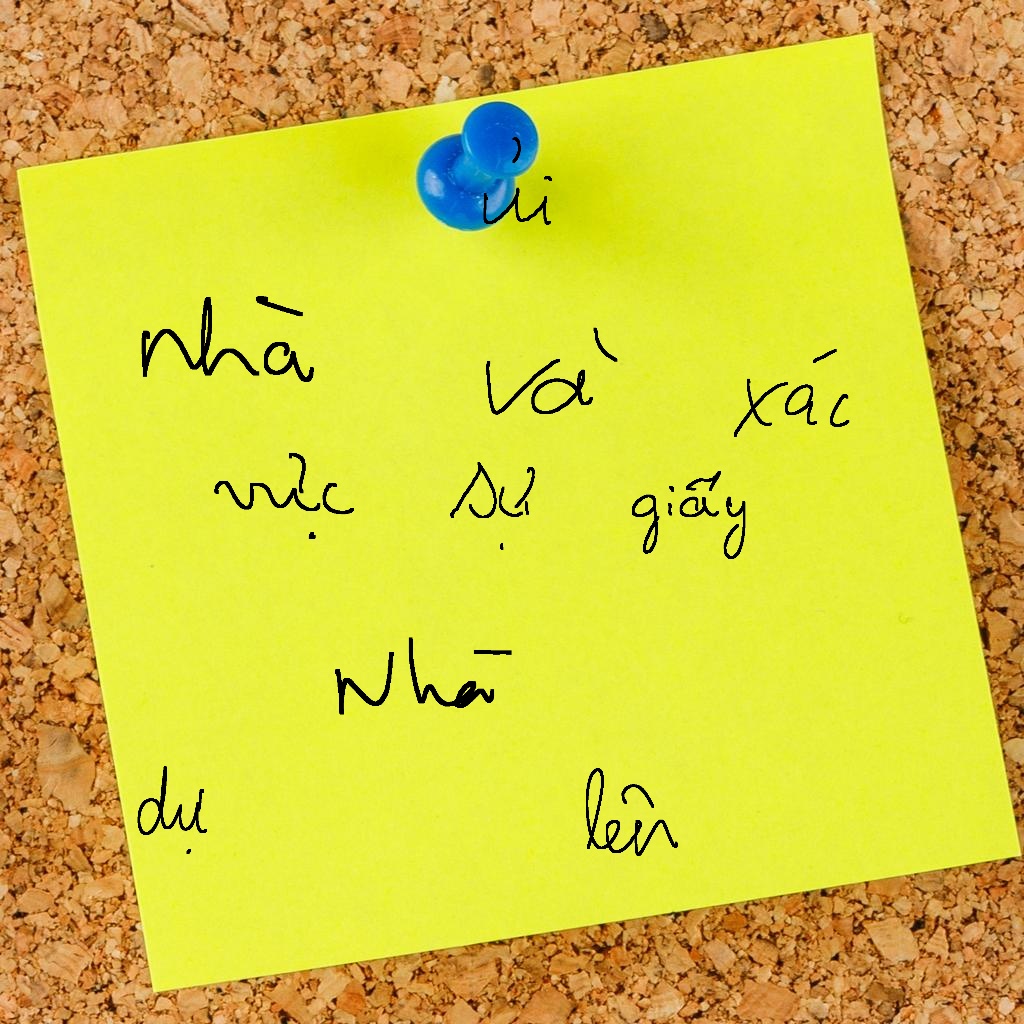 ủi
nhà và xác
vực sự giấy
Nhà
dụ lên